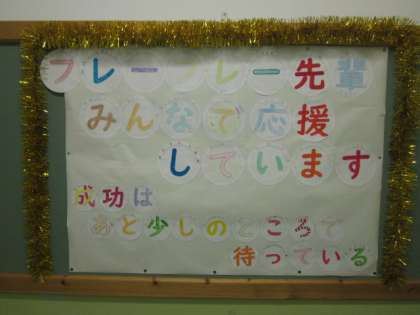 フレーフレー先輩
みんなで応援
しています
成功は
あと少しのところで
待っている